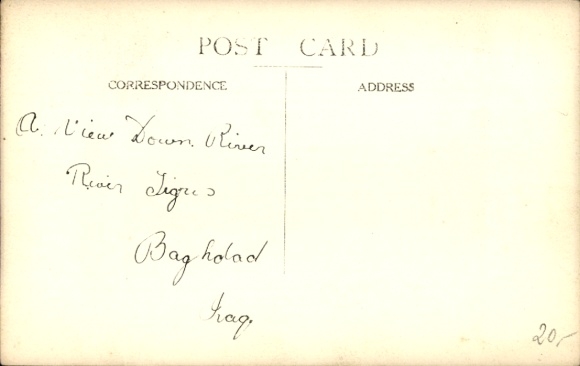 POST CARD
CORRESPONDENCE
ADDRESS
A. View Down. River
River Tigris
Baghdad
Iraq.
20,-